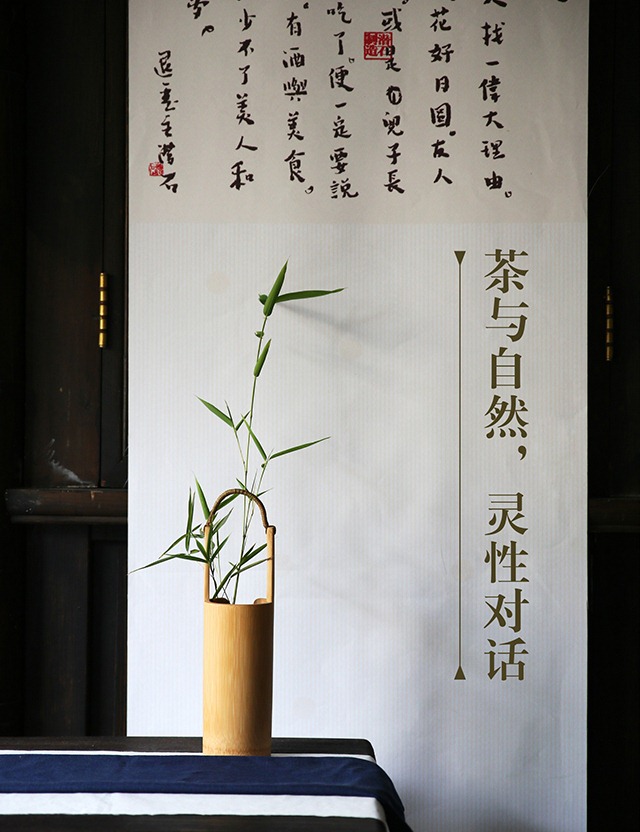 找一偉大理由。
花好月圓。友人
或是兒子長
吃了。便一定要說
有酒與美食。
少不了美人和
茶与自然，灵性对话